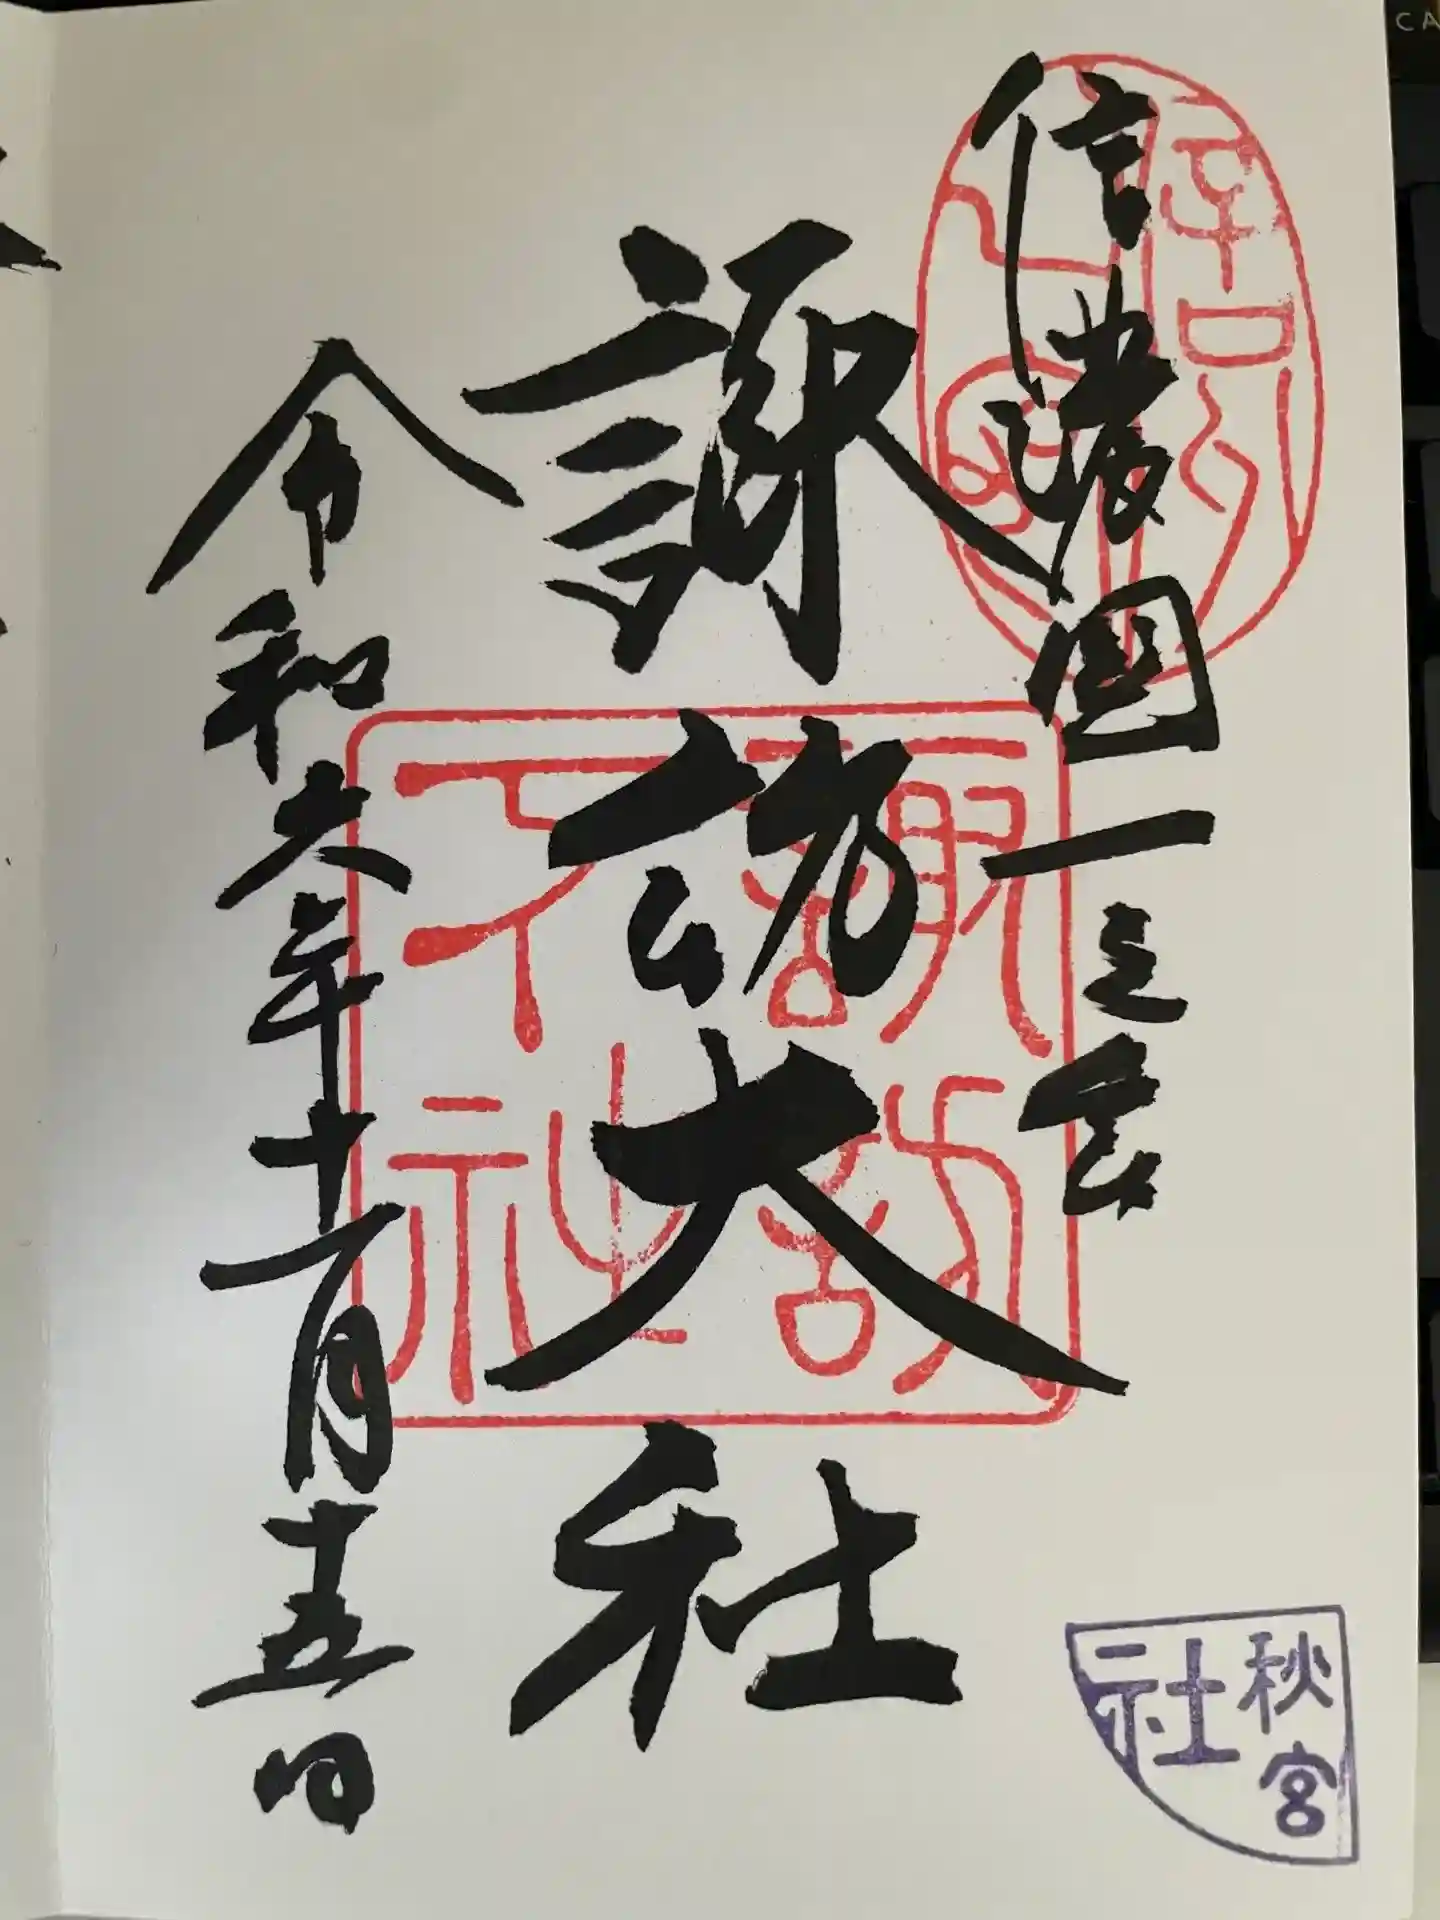 信濃國一之宮
諏訪大社
令和六年十一月十五日
諏訪
下社
秋宮
社
CA